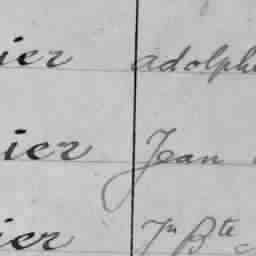 ier adolphe
ier Jean
ier Jn Bte